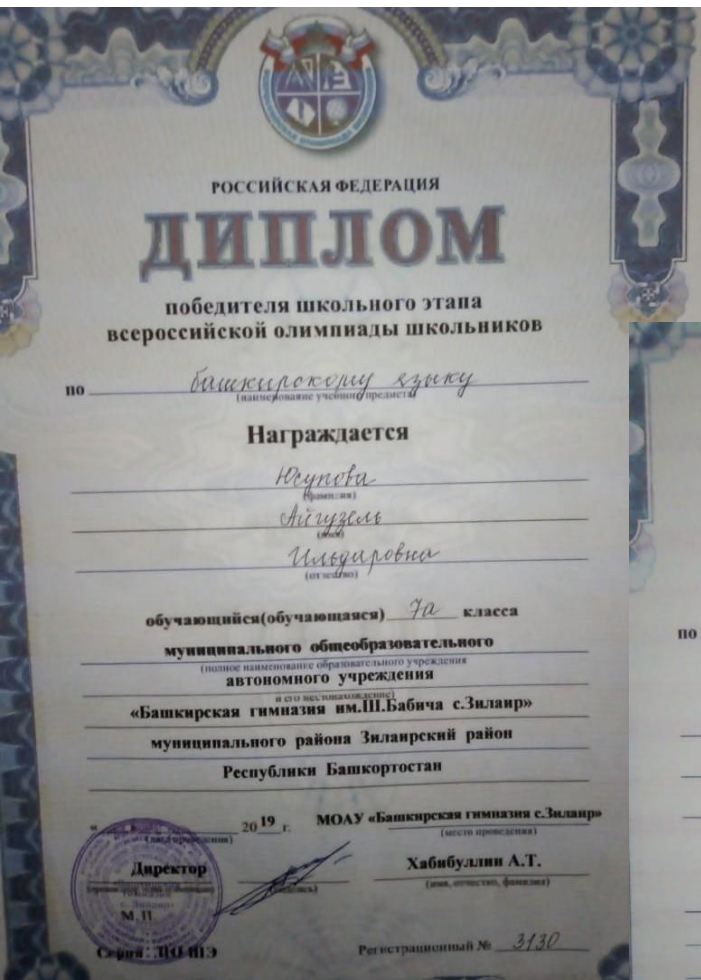 РОССИЙСКАЯ ФЕДЕРАЦИЯ
ДИПЛОМ
победителя школьного этапа
всероссийской олимпиады школьников
по башкирскому языку
(наименование учебного предмета)
Награждается
Юсупова
(фамилия)
Айгузель
(имя)
Ильдаровна
(отчество)
обучающийся(обучающаяся) 7а класса
муниципального общеобразовательного
(полное наименование образовательного учреждения
автономного учреждения
и его местонахождение)
«Башкирская гимназия им.Ш.Бабича с.Зилаир»
муниципального района Зилаирский район
Республики Башкортостан
« 2019 г. МОАУ «Башкирская гимназия с.Зилаир»
(дата проведения) (место проведения)
Директор Хабибуллин А.Т.
(подпись) (имя, отчество, фамилия)
М.П.
Серия ЛО ШЭ Регистрационный № 3130
по